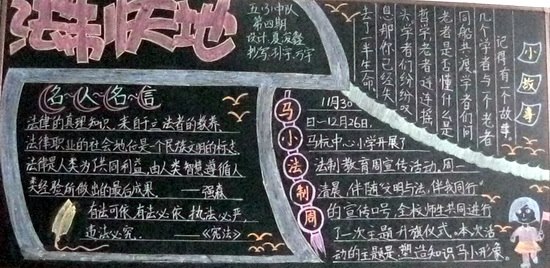 法制天地
五·3中队
第四期
小故事
记得有个故事,
几个学者与个老者
同船共渡学者们问
老者是否懂什么是
哲学老者连连摇
头学者们纷纷叹
息那你已经失
去了一半生命
名人名言
法律的真理知识,来自于立法者的教养
法律职业的社会地位是个民族文明的标志
法律是人类为了共同利益,由人类智慧遵循人
类经验所做出的最后成果。——强森
有法可依,有法必依,执法必严
违法必究。——《宪法》
马小法制周
11月30
日—12月26日.
马杭中心小学开展了
法制教育周宣传活动.周一
清晨"伴随文明与法,伴我同行"
的宣传口号,全校师生共同进行
了一次主题升旗仪式。本次活
动的主题是:塑造知识马小形象。